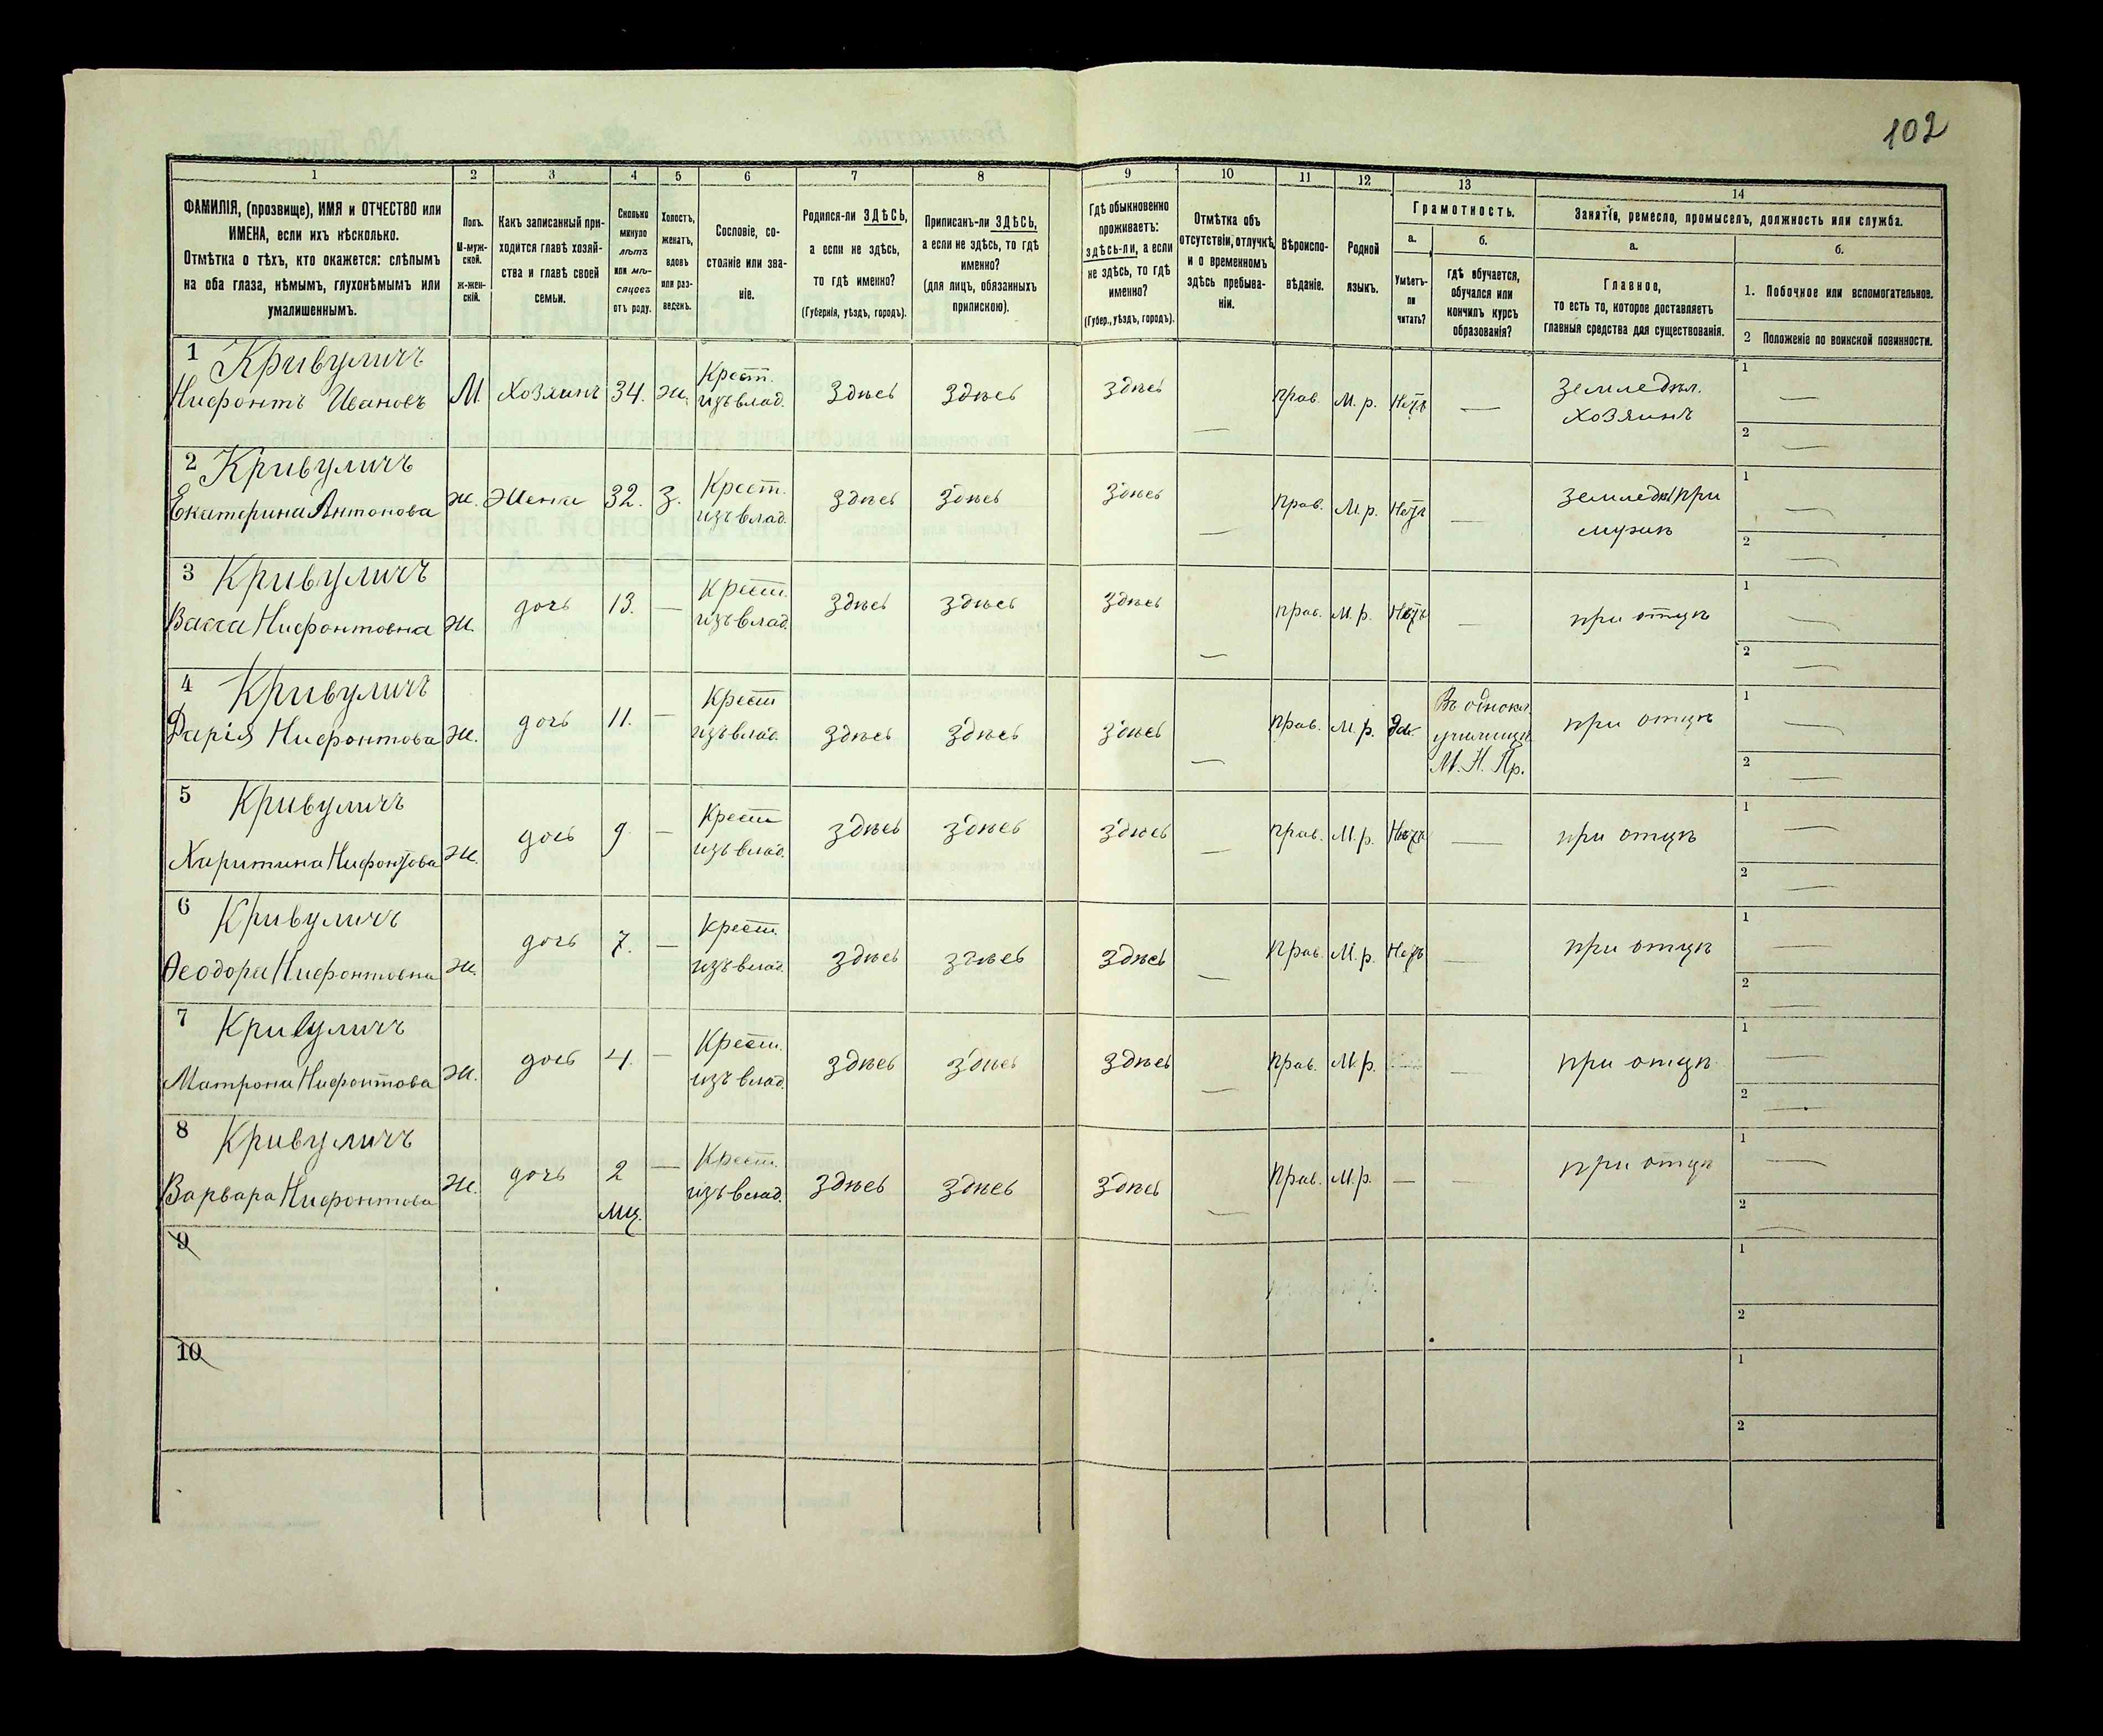 102
1 2 3 4 5 6 7 8 9 10 11 12 13 14
ФАМИЛІЯ, (прозвище), ИМЯ и ОТЧЕСТВО или
ИМЕНА, если ихъ нѣсколько.
Отмѣтка о тѣхъ, кто окажется: слѣпымъ
на оба глаза, нѣмымъ, глухонѣмымъ или
умалишеннымъ.
Полъ.
М-муж-
ской.
ж-жен-
скій.
Какъ записанный при-
ходится главѣ хозяй-
ства и главѣ своей
семьи.
Сколько
минуло
лѣтъ
или мѣ-
сяцевъ
отъ роду.
Холостъ,
женатъ,
вдовъ
или раз-
веденъ.
Сословіе, со-
стояніе или зва-
ніе.
Родился-ли ЗДѢСЬ,
а если не здѣсь,
то гдѣ именно?
(Губернія, уѣздъ, городъ).
Приписанъ-ли ЗДѢСЬ,
а если не здѣсь, то гдѣ
именно?
(для лицъ, обязанныхъ
припискою).
Гдѣ обыкновенно
проживаетъ:
здѣсь-ли, а если
не здѣсь, то гдѣ
именно?
(Губер., уѣздъ, городъ).
Отмѣтка объ
отсутствіи, отлучкѣ
и о временномъ
здѣсь пребыва-
ніи.
Вѣроиспо-
вѣданіе.
Родной
языкъ.
Грамотность.
а. б.
Умѣетъ-
ли
читать?
Гдѣ обучается,
обучался или
кончилъ курсъ
образованія?
Занятіе, ремесло, промыселъ, должность или служба.
а. б.
Главное,
то есть то, которое доставляетъ
главныя средства для существованія.
1. Побочное или вспомогательное.
2 Положеніе по воинской повинности.
1 Кривуличъ
Нифонтъ Ивановъ М. Хозяинъ 34. ж. Крест. изъ влад. Здѣсь Здѣсь Здѣсь — Прав. М. р. Нѣтъ — Земледѣл. хозяинъ 1 — 2 —
2 Кривуличъ
Екатерина Антонова ж. Жена 32. З. Крест. изъ влад. Здѣсь Здѣсь Здѣсь — Прав. М. р. Нѣтъ — Земледѣл при мужѣ 1 — 2 —
3 Кривуличъ
Васса Нифонтовна ж. дочь 13. — Крест. изъ влад. Здѣсь Здѣсь Здѣсь — Прав. М. р. Нѣтъ — при отцѣ 1 — 2 —
4 Кривуличъ
Дарія Нифонтова ж. дочь 11. — Крест изъ влад. Здѣсь Здѣсь Здѣсь — Прав. М. р. Да Въ однокл. училищѣ М. Н. Пр. при отцѣ 1 — 2 —
5 Кривуличъ
Харитина Нифонтова ж. дочь 9 — Крест изъ влад. Здѣсь Здѣсь Здѣсь — Прав. М. р. Нѣтъ — при отцѣ 1 — 2 —
6 Кривуличъ
Ѳеодора Нифонтовна ж. дочь 7. — Крест. изъ влад. Здѣсь Здѣсь Здѣсь — Прав. М. р. Нѣтъ — при отцѣ 1 — 2 —
7 Кривуличъ
Матрона Нифонтова ж. дочь 4. — Крест. изъ влад. Здѣсь Здѣсь Здѣсь — Прав. М. р. — при отцѣ 1 — 2 —
8 Кривуличъ
Варвара Нифонтова ж. дочь 2 мц. — Крест. изъ влад. Здѣсь Здѣсь Здѣсь — Прав. М. р. — — при отцѣ 1 — 2 —
9 1 2
10 1 2